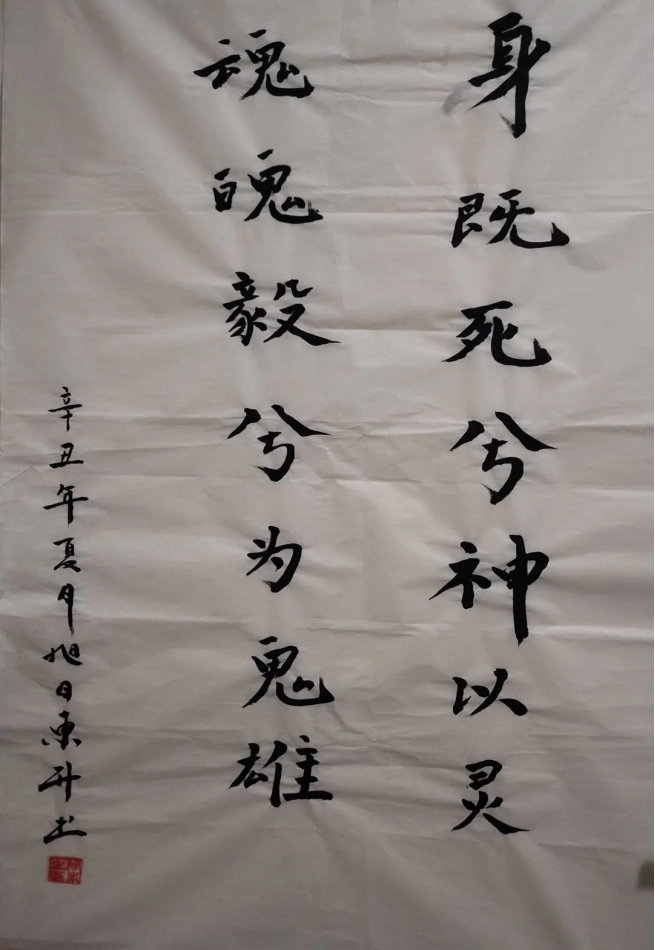 身既死兮神以灵
魂魄毅兮为鬼雄
辛丑年夏月旭日東升书